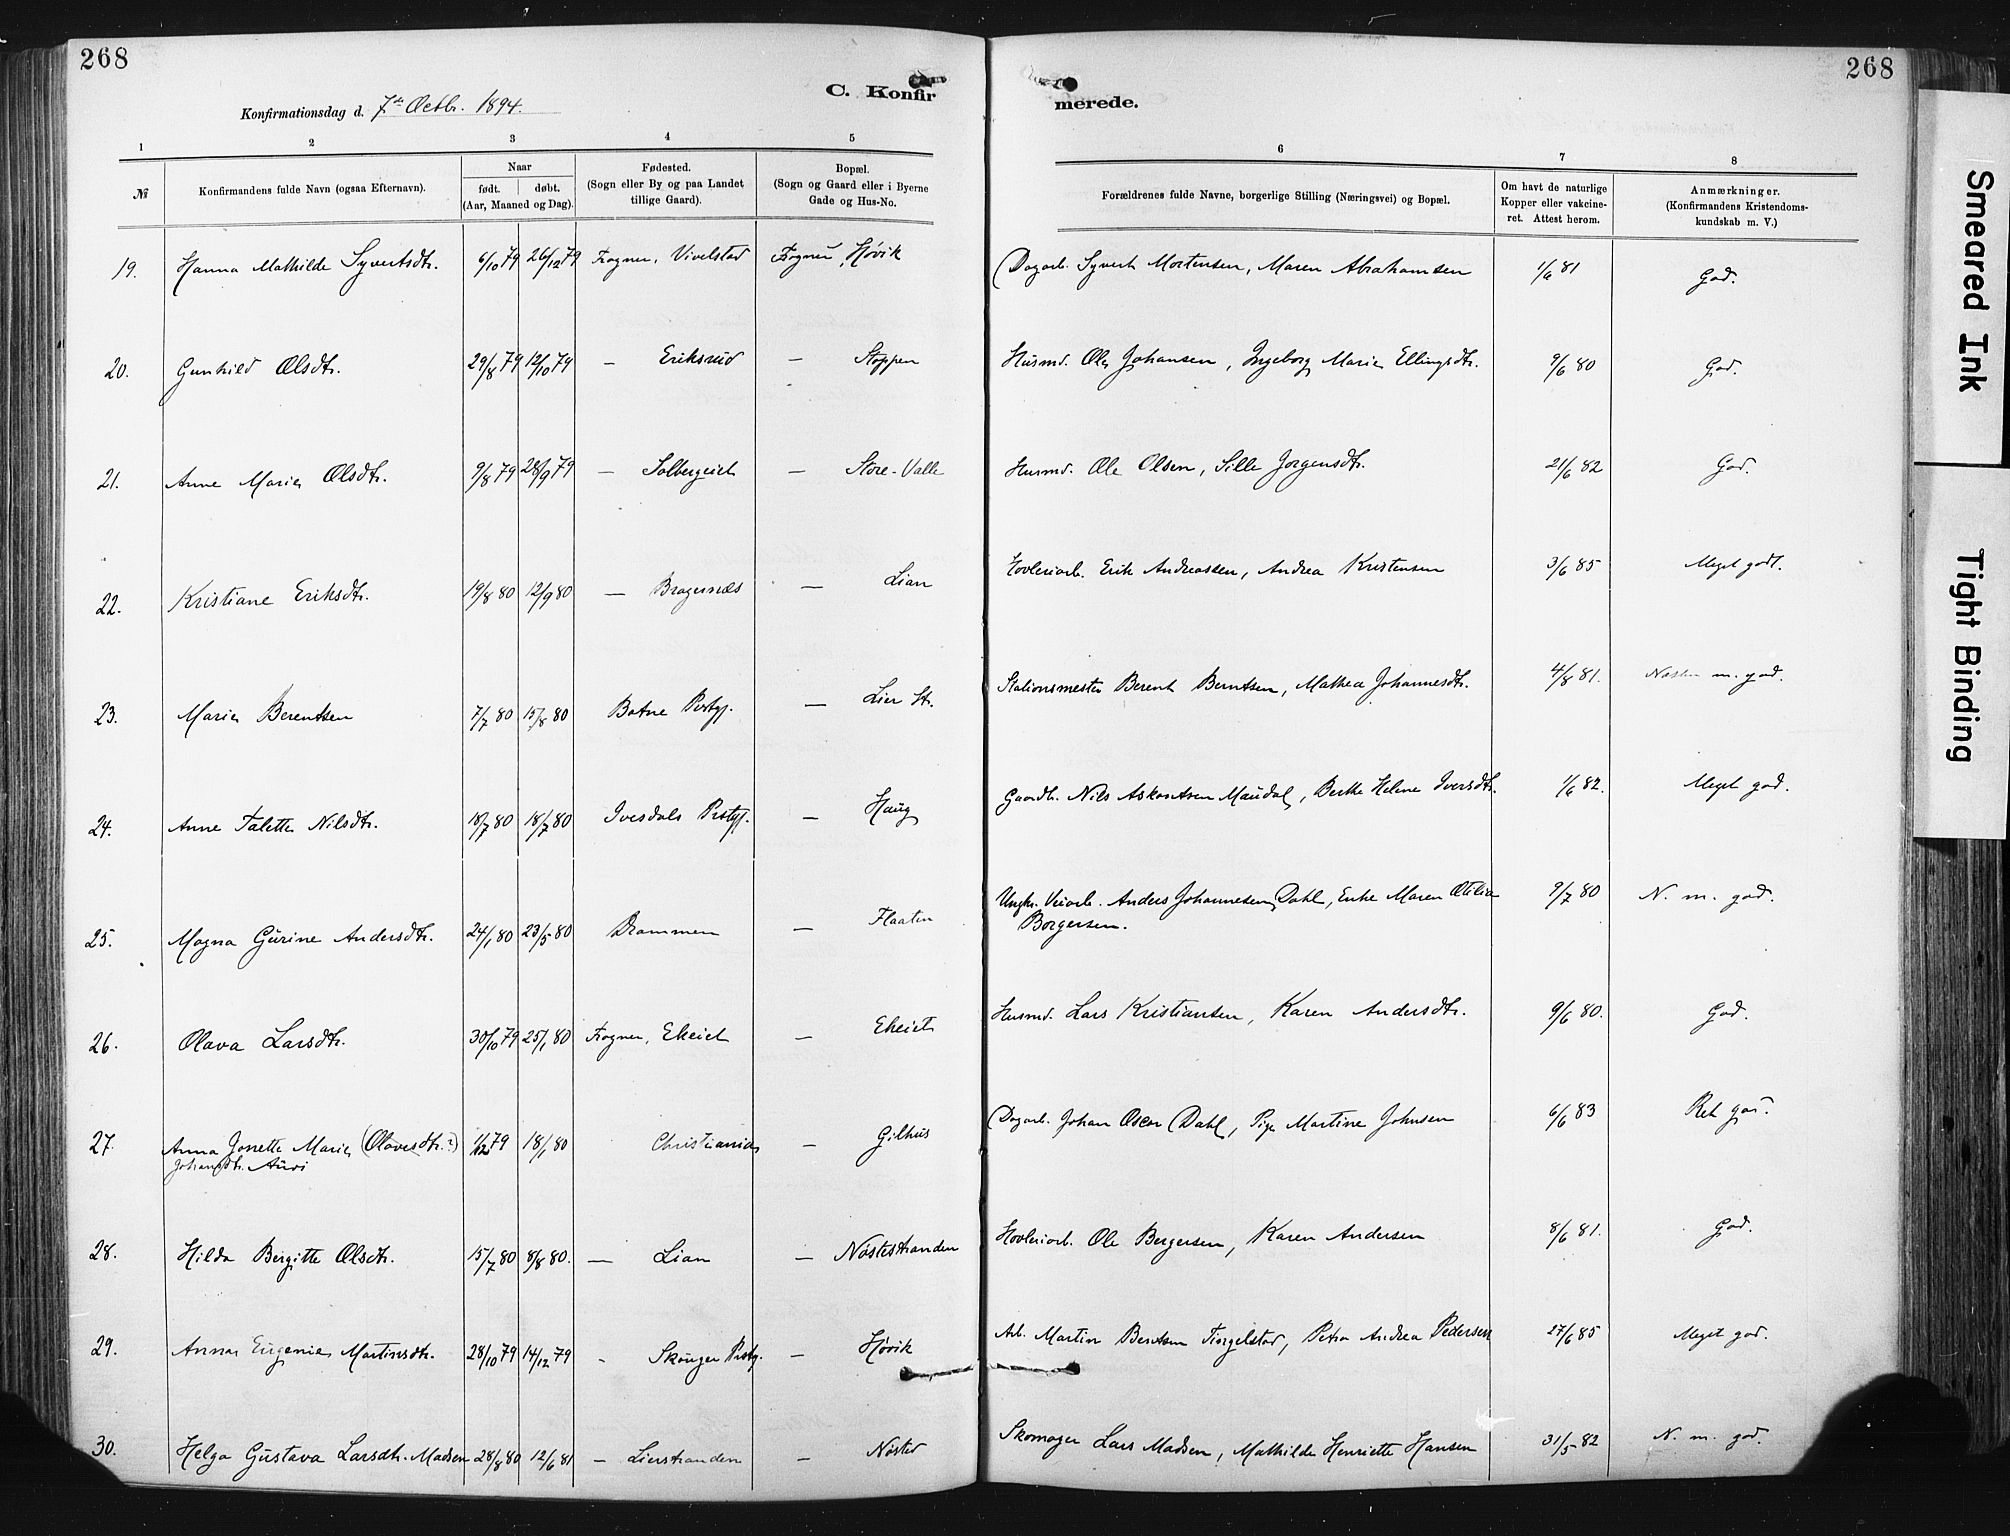 268
268
C. Konfirmerede.
Konfirmationsdag d. 7de Octbr. 1894.
1 2 3 4 5 6 7 8
№ Konfirmandens fulde Navn (ogsaa Efternavn). Naar født. døbt. (Aar, Maaned og Dag). Fødested. (Sogn eller By og paa Landet tillige Gaard). Bopæl. (Sogn og Gaard eller i Byerne Gade og Hus-No. Forældrenes fulde Navne, borgerlige Stilling (Næringsvei) og Bopæl. Om havt de naturlige Kopper eller vakcineret. Attest herom. Anmærkninger. (Konfirmandens Kristendomskundskab m. V.)
19. Hanna Mathilde Syvertsdtr. 6/10 79 26/12 79 Frogner, Vivelstad Frogner, Høvik Dagarb. Syvert Mortensen, Maren Abrahamsen 1/6 81 God.
20. Gunhild Olsdtr. 29/8 79 12/10 79 — Eriksrud — Stoppen Husmd. Ole Johansen, Ingeborg Marie Ellingsdtr. 9/6 80 God.
21. Anne Marie Olsdtr. 9/8 79 28/9 79 — Solbergeiet — Store-Valle Husmd. Ole Olsen, Sille Jørgensdtr. 21/6 82 God.
22. Kristiane Eriksdtr. 19/8 80 12/9 80 — Bragernæs — Lian Høvleriarb. Erik Andreassen, Andrea Kristensen 3/6 85 Meget godt.
23. Marie Berentsen 7/7 80 15/8 80 Botne Prstgj. — Lier St. Stationsmester Berent Berntsen, Mathea Johannesdtr. 4/8 81. Næsten m. god.
24. Anne Talette Nilsdtr. 18/7 80 18/7 80 Ivesdals Prstgj. — Haug Gaardb. Nils Askontsen Maudal, Berthe Helene Iversdtr. 1/6 82. Meget god.
25. Magna Gurine Andersdtr. 24/1 80 23/5 80 Drammen — Flaaten Ungkr. Veiarb. Anders Johannesen Dahl, Enke Maren Otilia 9/7 80 N. m. god.
Borgersen.
26. Olava Larsdtr. 30/10 79 25/1 80 Frogner, Ekeiet — Ekeiet Husmd. Lars Kristiansen, Karen Andersdtr. 9/6 80. God.
27. Anna Jonette Marie (Olavesdtr.?) 1/12 79 18/1 80 Christiania — Gilhus Dagarb. Johan Oscar Dahl, Pige Martine Johnsen 6/6 83 Ret god.
Johansdtr. Auvi
28. Hilda Bergitte Olsdtr. 15/7 80 8/8 80. — Lian — Nøstestranden Høvleriarb. Ole Bergersen, Karen Andersen 8/6 81. God.
29. Anna Eugenie Martinsdtr. 28/10 79 14/12 79 - Skouger Prstg. — Høvik Arb. Martin Berntsen Tingelstad, Petra Andrea Pedersen 27/6 85 Meget god.
30. Helga Gustava Larsdtr. Madsen 28/8 80 12/6 81 — Lierstranden — Nøsted Skomager Lars Madsen, Mathilde Henriette Hansen 31/5 82 N. m. god.
Smeared Ink
Tight Binding